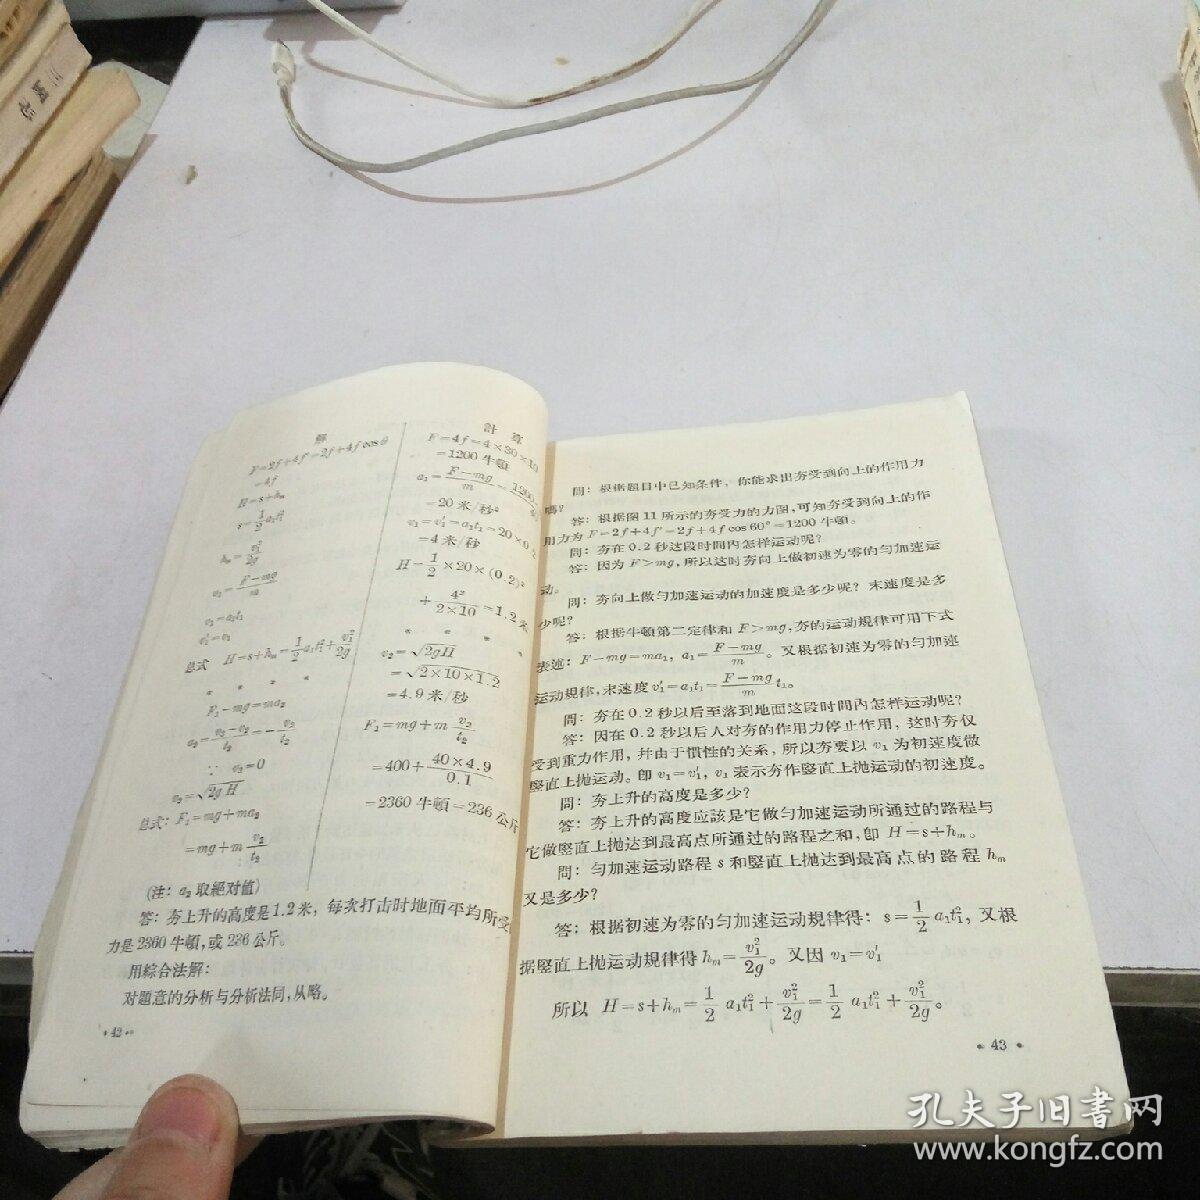 解
F=2f+4f'=2f+4f cosθ
=4f
H=s+hₘ
s=\frac{1}{2}a₁t₁²
hₘ=\frac{v₁²}{2g}
a₁=\frac{F-mg}{m}
v₁=a₁t₁
v₁'=v₁
总式 H=s+hₘ=\frac{1}{2}a₁t₁²+\frac{v₁²}{2g}
* * * *
F₁-mg=ma₂
a₂=\frac{v₃-v₂}{t₂}=-\frac{v₂}{t₂}
∵ v₃=0
v₂=√2gH
总式: F₁=mg+ma₂
=mg+m\frac{v₂}{t₂}
(注: a₂取絕对值)
計算
F=4f=4×30×10
=1200牛頓
a₁=\frac{F-mg}{m}=\frac{1200
=20米/秒²
v₁=v₁'=a₁t₁=20×0.2
=4米/秒
H=\frac{1}{2}×20×(0.2)²
+\frac{4²}{2×10}=1.2米
* * *
v₂=√2gH
=√2×10×1.2
=4.9米/秒
F₁=mg+m\frac{v₂}{t₂}
=400+\frac{40×4.9}{0.1}
=2360牛頓=236公斤
答: 夯上升的高度是1.2米, 每次打击时地面平均所受
力是2360牛頓, 或236公斤。
用綜合法解:
对題意的分析与分析法同, 从略。
• 42 •
問: 根据題目中已知条件, 你能求出夯受到向上的作用力
嗎?
答: 根据图11所示的夯受力的力图, 可知夯受到向上的作
用力为F=2f+4f'=2f+4f cos60°=1200牛頓。
問: 夯在0.2秒这段时間內怎样运动呢?
答: 因为F>mg, 所以这时夯向上做初速为零的匀加速运
动。
問: 夯向上做匀加速运动的加速度是多少呢? 末速度是多
少呢?
答: 根据牛頓第二定律和F>mg, 夯的运动規律可用下式
表述: F-mg=ma₁, a₁=\frac{F-mg}{m}。又根据初速为零的匀加速
运动規律, 末速度v₁'=a₁t₁=\frac{F-mg}{m}t₁。
問: 夯在0.2秒以后至落到地面这段时間內怎样运动呢?
答: 因在0.2秒以后人对夯的作用力停止作用, 这时夯仅
受到重力作用, 并由于慣性的关系, 所以夯要以v₁为初速度做
豎直上抛运动。即v₁=v₁', v₁表示夯作豎直上抛运动的初速度。
問: 夯上升的高度是多少?
答: 夯上升的高度应該是它做匀加速运动所通过的路程与
它做豎直上抛达到最高点所通过的路程之和, 即H=s+hₘ。
問: 匀加速运动路程s和豎直上抛达到最高点的路程hₘ
又是多少?
答: 根据初速为零的匀加速运动規律得: s=\frac{1}{2}a₁t₁², 又根
据豎直上抛运动規律得hₘ=\frac{v₁²}{2g}。又因v₁=v₁'
所以 H=s+hₘ=\frac{1}{2}a₁t₁²+\frac{v₁²}{2g}=\frac{1}{2}a₁t₁²+\frac{v₁²}{2g}。
• 43 •
孔夫子旧書网
www.kongfz.com